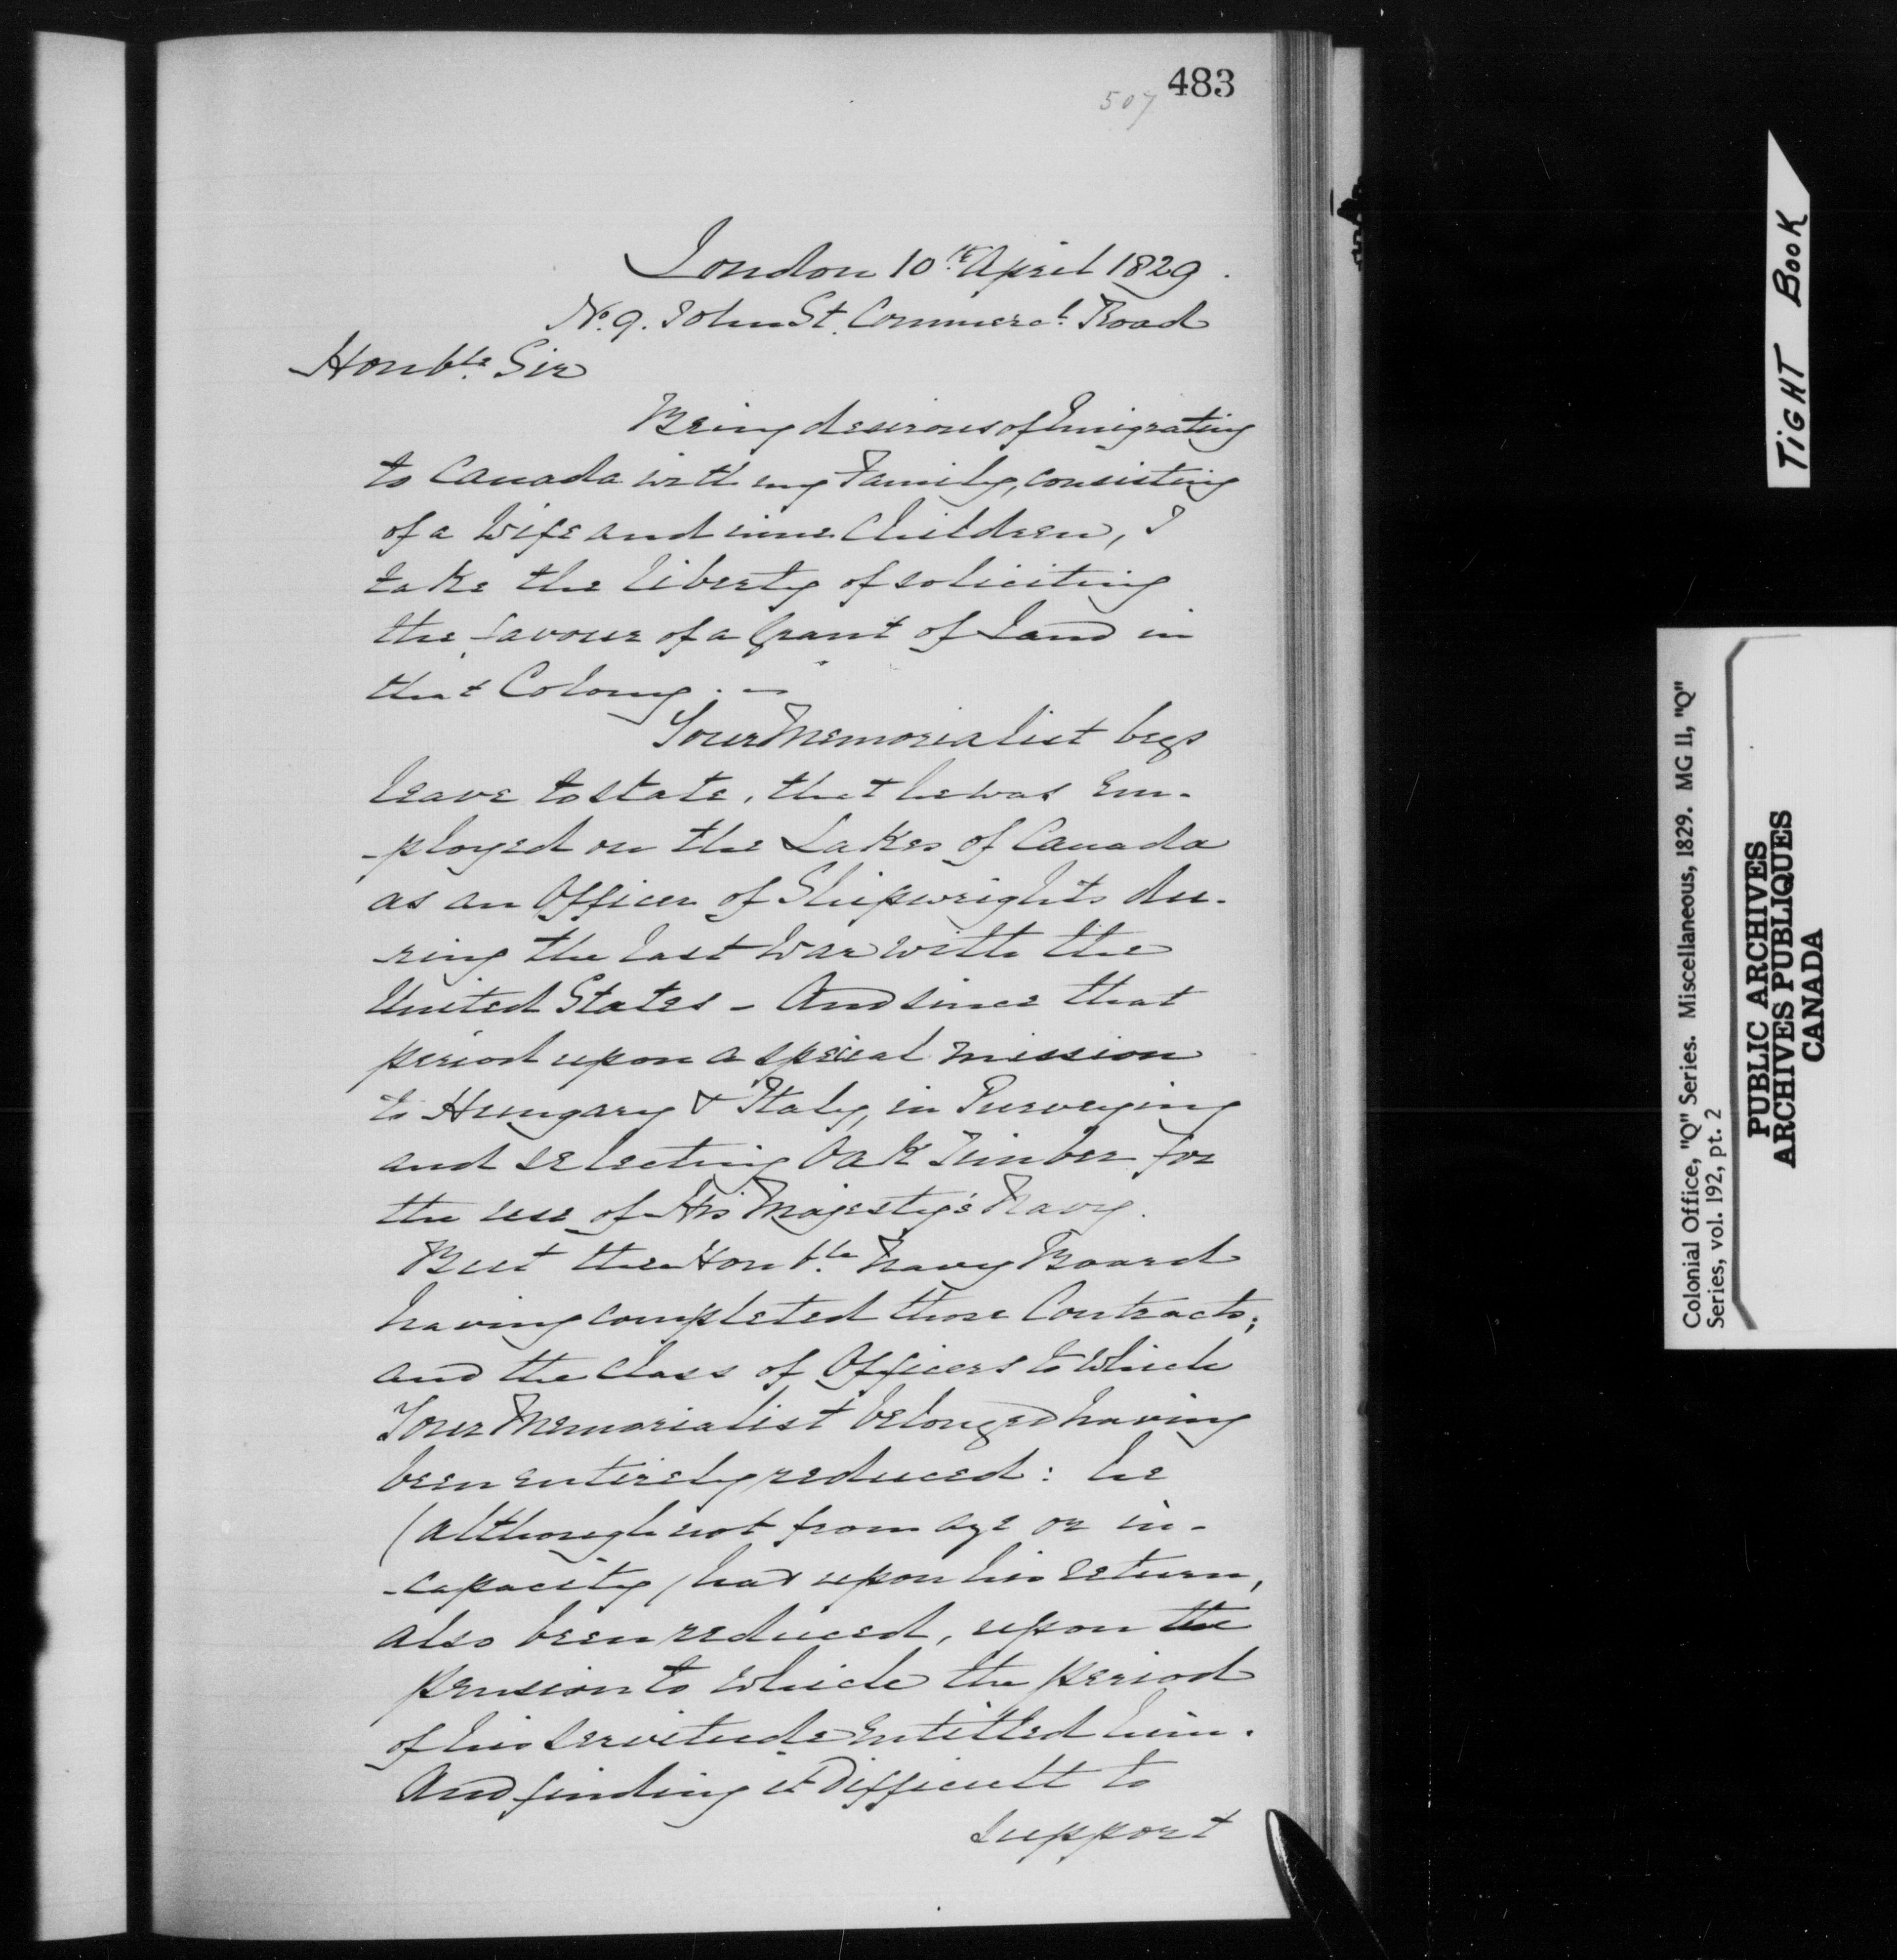 483
507
London 10th April 1829.
No. 9. John St. Commercl. Road
Honble. Sir
Being desirous of Emigrating
to Canada with my Family, consisting
of a Wife and nine Children, I
take the liberty of soliciting
the favour of a Grant of Land in
that Colony. —
Your Memorialist begs
leave to state, that he was Em-
-ployed on the Lakes of Canada
as an Officer of Shipwrights du-
-ring the last War with the
United States - And since that
period upon a special mission
to Hungary & Italy, in Purveying
and selecting Oak Timber for
the use of His Majesty's Navy.
But the Honble. Navy Board
having completed those Contracts;
and the class of Officers to which
Your Memorialist belonged having
been entirely reduced: he
(although not from age or in-
-capacity/ has upon his return,
also been reduced, upon the
pension to which the period
of his servitude entitled him.
And finding it Difficult to
support
TIGHT BOOK
Colonial Office, "Q" Series. Miscellaneous, 1829. MG 11, "Q"
Series, vol. 192, pt. 2
PUBLIC ARCHIVES
ARCHIVES PUBLIQUES
CANADA